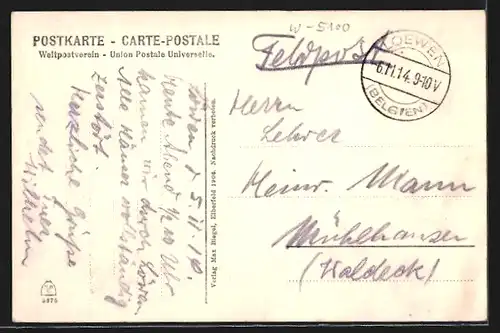 W-5100
POSTKARTE - CARTE-POSTALE
Weltpostverein - Union Postale Universelle.
Feldpost
LOEWEN
6.11.14. 9-10V
(BELGIEN)
Löwen d 5 11 14
Heute Abend 1/2 10 Uhr
kamen wir durch Löwen
Alle Häuser vollständig
Zerstört.
Herzliche Grüße
sendet
Wilhelm
Verlag Max Biegel, Elberfeld 1908. Nachdruck verboten.
Herrn
Lehrer
Heinr. Mann
Mühlhausen
(Waldeck)